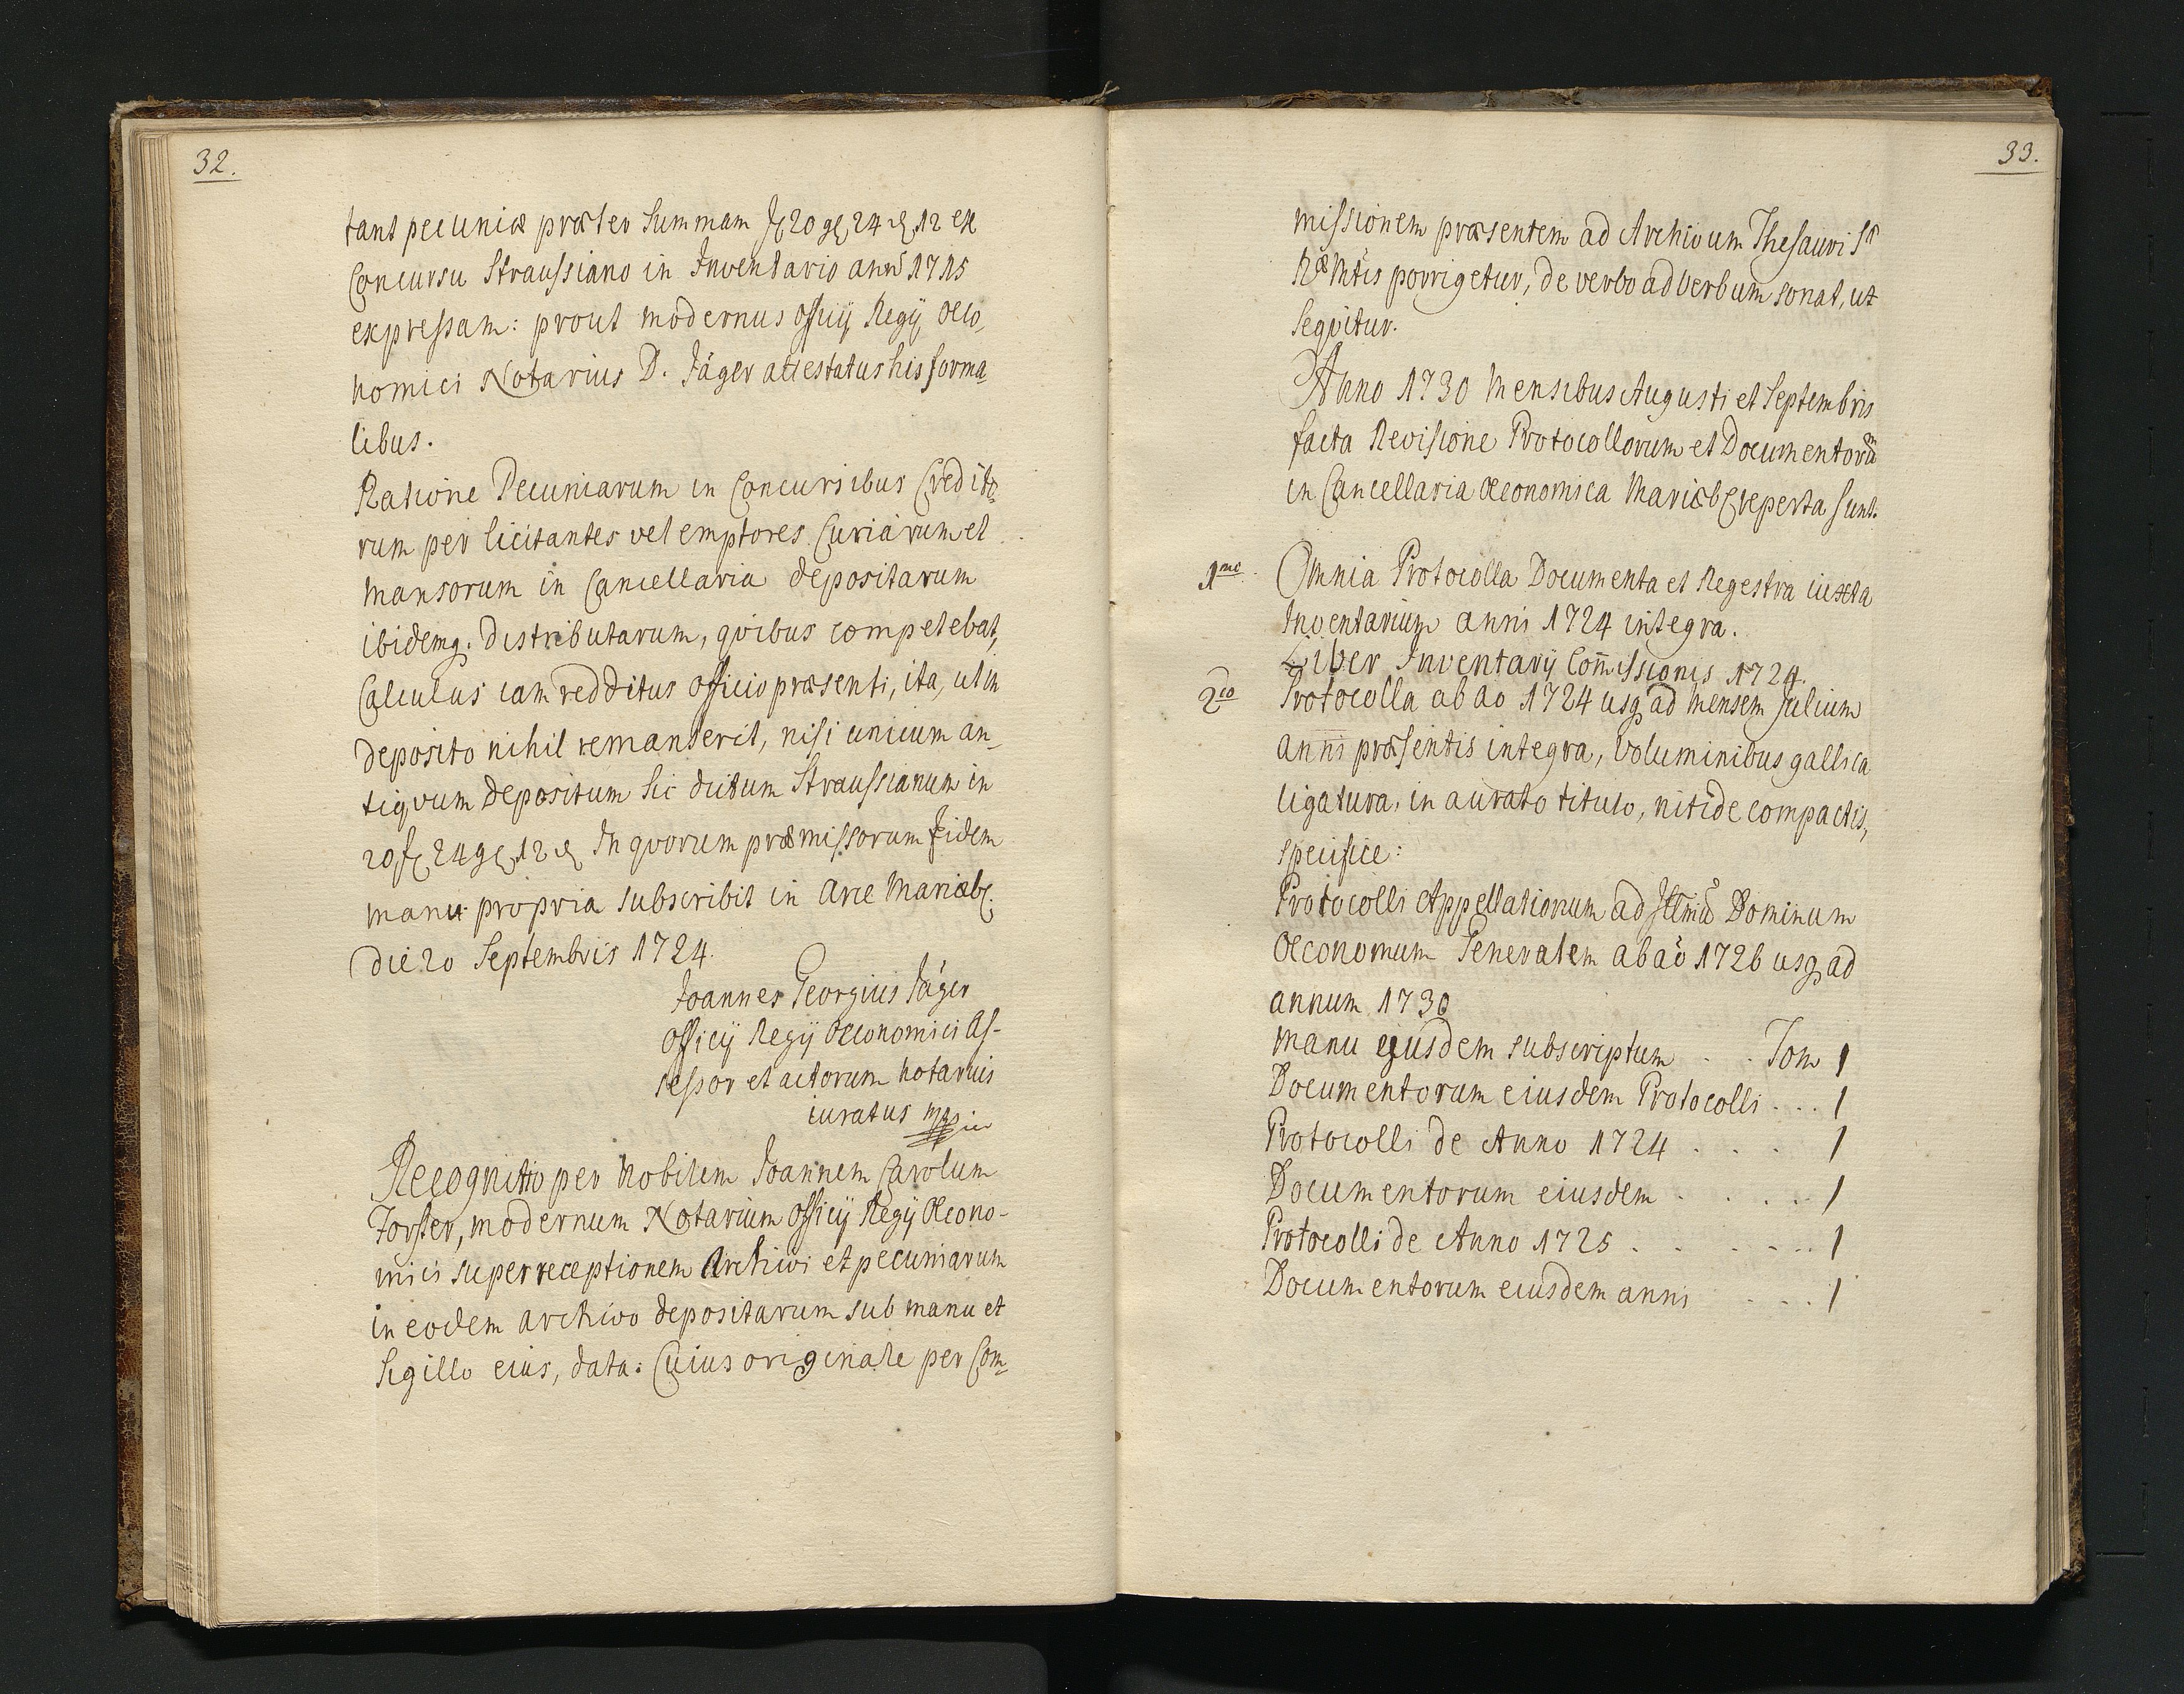 32.
tant pecuniæ præter Summam f 20 g 24 d 12 ex
Concursu Straussiano in Inventario anni 1715
expressam: prout modernus Officij Regij Oeco,
nomici Notarius D. Jäger attestatus his forma,
libus.
Ratione Pecuniarum in Concursibus Credito,
rum per licitantes vel emptores Curiarum et
Mansorum in Cancellaria depositarum
ibidemq. distributarum, qvibus competebat,
Calculus iam redditus officio præsenti, ita, ut in
deposito nihil remanserit, nisi unicum an,
tiqvum Depositum sic dictum Straussianum in
20 f 24 g 12 d In qvorum præmissorum fidem
manu propria subscribit in Arce Mariæb.
die 20 Septembris 1724.
Joannes Georgius Jäger
Officij Regij Oeconomici As-
sessor et actorum Notarius
iuratus mpria
Recognitio per Nobilem Joannem Carolum
Forster, modernum Notarium Officij Regij Oecono-
mici super receptionem Archivi et pecuniarum
in eodem archivo depositarum sub manu et
Sigillo eius, data: Cuius originale per Com,
33.
missionem præsentem ad Archivum Thesauri S
Ræ Mtis porrigetur, de verbo ad verbum sonat, ut
Seqvitur.
Anno 1730 Mensibus Augusti et Septembris
facta Revisione Protocollorum et Documentorū
in Cancellaria Oeconomica Mariæb reperta sunt.
1mo. Omnia Protocolla Documenta et Regestra iuxta
Inventarium anni 1724 integra.
Liber Inventarij Com̄issionis 1724.
2do Protocolla ab ao 1724 usq ad Mensem Julium
anni præsentis integra, Voluminibus gallica
ligatura, in aurato titulo, nitide compactis,
specifice:
Protocolli Appellationum ad Illmū Dominum
Oeconomum Generalem ab aō 1726 usq ad
annum 1730
manu ejusdem subscriptum . . Tom 1
Documentorum eiusdem Protocolli . . . 1
Protocolli de Anno 1724 . . . 1
Documentorum eiusdem . . . . . 1
Protocolli de Anno 1725 . . . . . . 1
Documentorum eiusdem anni . . . . 1